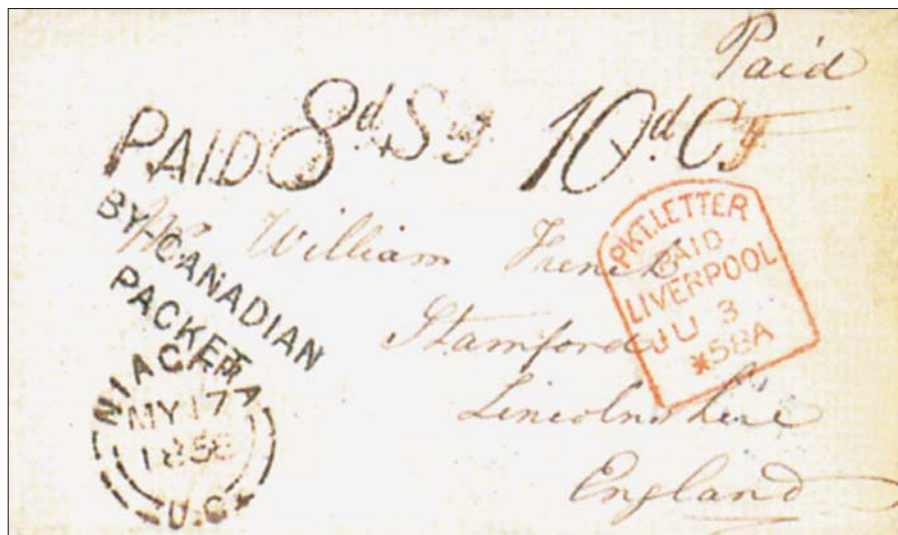 Paid
PAID 8d Stg 10d Cy
BY-CANADIAN
PACKET
Mr William French
Stamford
Lincolnshire
England
PKT. LETTER
PAID
LIVERPOOL
JU 3
*58A
NIAGARA
MY 17
1858
U.C